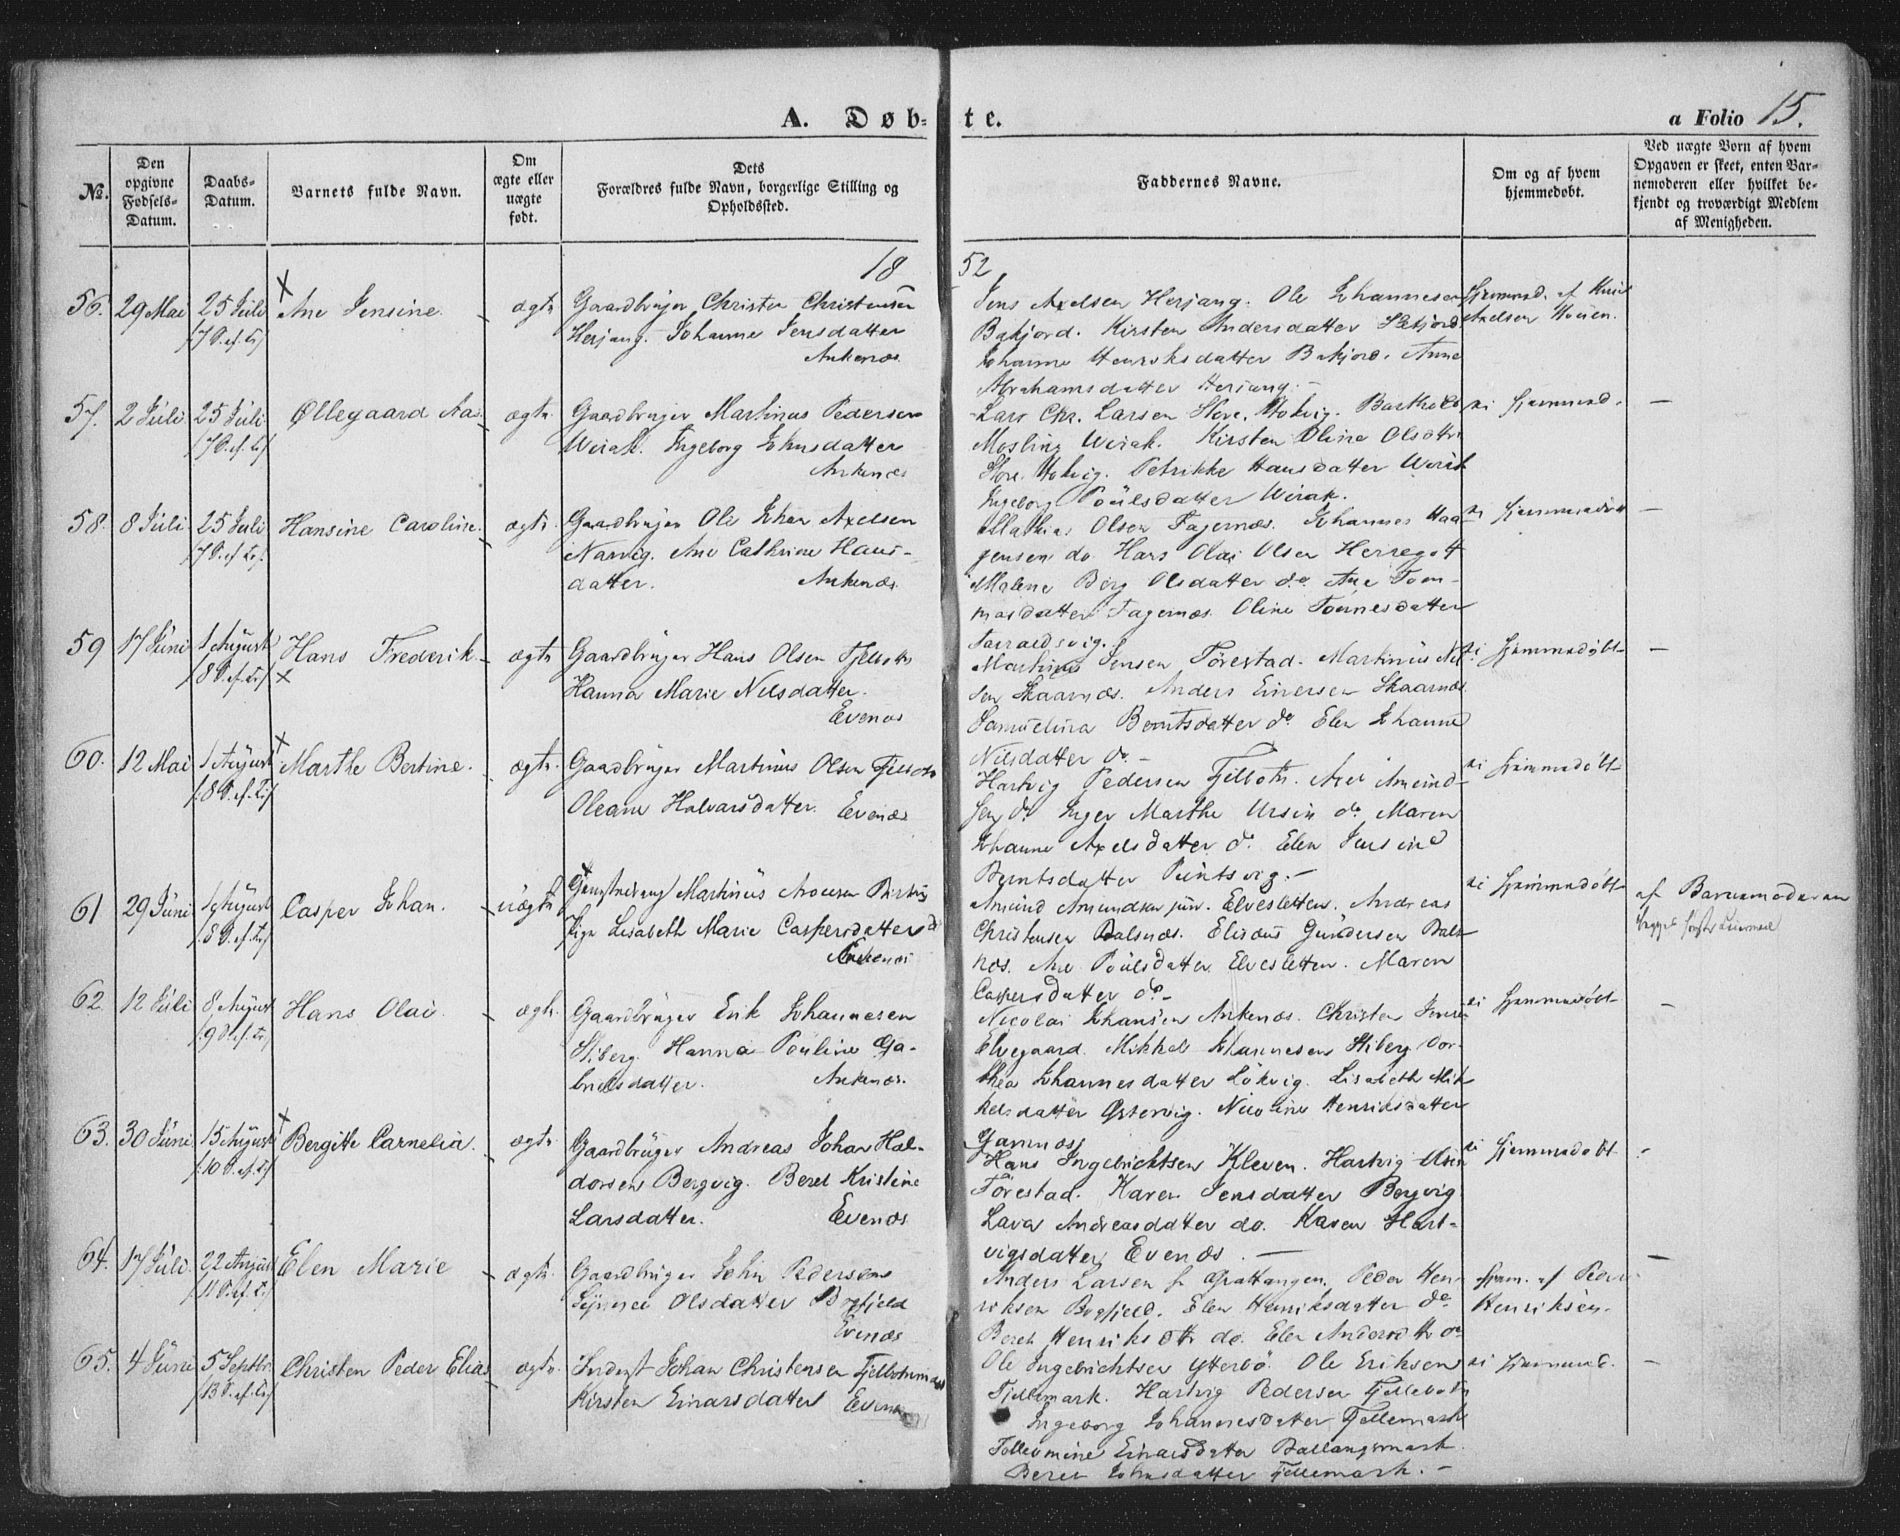 A. Døb-
te.
a Folio 15.
№.
Den
opgivne
Fødsels-
Datum.
Daabs-
Datum.
Barnets fulde Navn.
Om
ægte eller
uægte
født.
Dets
Forældres fulde Navn, borgerlige Stilling og
Opholdssted.
Faddernes Navne.
Om og af hvem
hjemmedøbt.
Ved uægte Born af hvem
Opgaven er skeet, enten Bar-
nemoderen eller hvilket be-
kjendt og troværdigt Medlem
af Menigheden.
18 52
56. 29 Mai 25 Juli Ane Jensine. ægte Gaardbruger Christen Christensen
Herjang. Johanne Jensdatter
Ankenæs.
Jens Axelsen Herjang. Ole Johannesen
Bakjord. Kirsten Andersdatter
Johanne Henriksdatter Bakjord. Anne
Abrahamsdatter Herjang. –
Axelsen
57. 2 Juli 25 Juli Øllegaard Aas. ægte Gaardbruger Martinus Pedersen
Wirak. Ingeborg Johnsdatter
Ankenæs
Lars Chr. Larsen Store.
Mosling Wirak. Kirsten Oline Olsdttr
Petrikke Hansdatter Wirak
Ingeborg Poulsdatter Wirak.
ei hjemmed. –
58. 8 Juli 25 Juli Hansine Caroline. ægte Gaardbruger Ole Johan Axelsen
Narvig. Ane Cathrine Hans-
datter. Ankenæs
Mathias Olsen Fagernæs. Johannes Haa-
gensen do Hans Olai Olsen Herregott
Malene Berg Olsdatter do. Ane Tom-
masdatter Fagernæs. Oline Tønnesdatter
Taraldsvig.
ei hjemmedøbt –
59 17 Juni 1 August Hans Frederik. ægte Gaardbruger Hans Olsen Fjelbotn
Hanna Marie Nilsdatter.
Evenæs
Martinus Jensen Førestad. Martinus Nil-
sen Skaarnæs. Anders Einersen Skaarnæs
Samuelina Berntsdatter do Elen Johanne
Nilsdatter do –
ei hjemmedøbt –
60. 12 Mai 1 August Marthe Bertine. ægte Gaardbruger Martinus Olsen Fjelbotn
Oleane Halvarsdatter. Evenæs
Hartvig Pedersen Fjelbotn. Axel Amund-
sen do Inger Marthe Ursin do Maren
Johanne Axelsdatter do Elen Jensine
Berntsdatter –
ei hjemmedøbt
61 29 Juni 1 August Casper Johan. uægte Martinus
Pige Lisabeth Marie Caspersdatter
Ankenæs
Amund Amundsen jun. Elvesletten. Andreas
Christensen Balsnæs. Elisæus Gundersen Bals-
næs. Ane Poulsdatter Elvesletten. Maren
Caspersdatter do –
ei hjemmedøbt
af Barnemoderen
62 12 Juli 8 August Hans Olai ægte Gaardbruger Erik Johannesen
Stiberg. Hanna Pouline Ga-
brielsdatter. Ankenæs.
Nicolai Johansen Ankenæs. Christen
Elvegaard. Mikkel Johannesen Stiberg Dor-
thea Johannesdatter Løkvig. Lisabeth Mik-
kelsdatter Østervig. Nicoline Henriksdatter
ei hjemmedøbt –
63. 30 Juni 15 August Bergitte Carnelia. ægte Gaardbruger Andreas Johan Hal-
dorsen Bergvig. Beret Kristine
Larsdatter. Evenæs
Hans Ingebrichtsen Kleven. Hartvig
Førestad. Karen Jensdatter Bergvig
Lava Andreasdatter do. Karen Hart-
vigsdatter Evenæs. –
ei hjemmedøbt –
64. 17 Juli 22 August Elen Marie ægte Gaardbruger John Pedersen
Olsdatter Bogfjeld
Evenæs
Anders Larsen fr Grattangen. Peder Hen-
riksen Bogfjeld. Elen Henriksdatter do
Beret Henriksdttr do. Elen Andersdttr do
hjem. af Peder
Henriksen. –
65. 4 Juni 5 Septbr. Christen Peder Elias ægte Inderst Johan Christensen
Kirsten Einarsdatter Evenæs
Ole Ingebrichtsen Ytterbø. Ole Eriksen
Fjellemark. Hartvig Pedersen Fjellebotn
Ingeborg Johannesdatter Fjellemark
Einarsdatter Ballangsmark.
Beret Johnsdatter Fjellemark. –
ei hjemmed. –